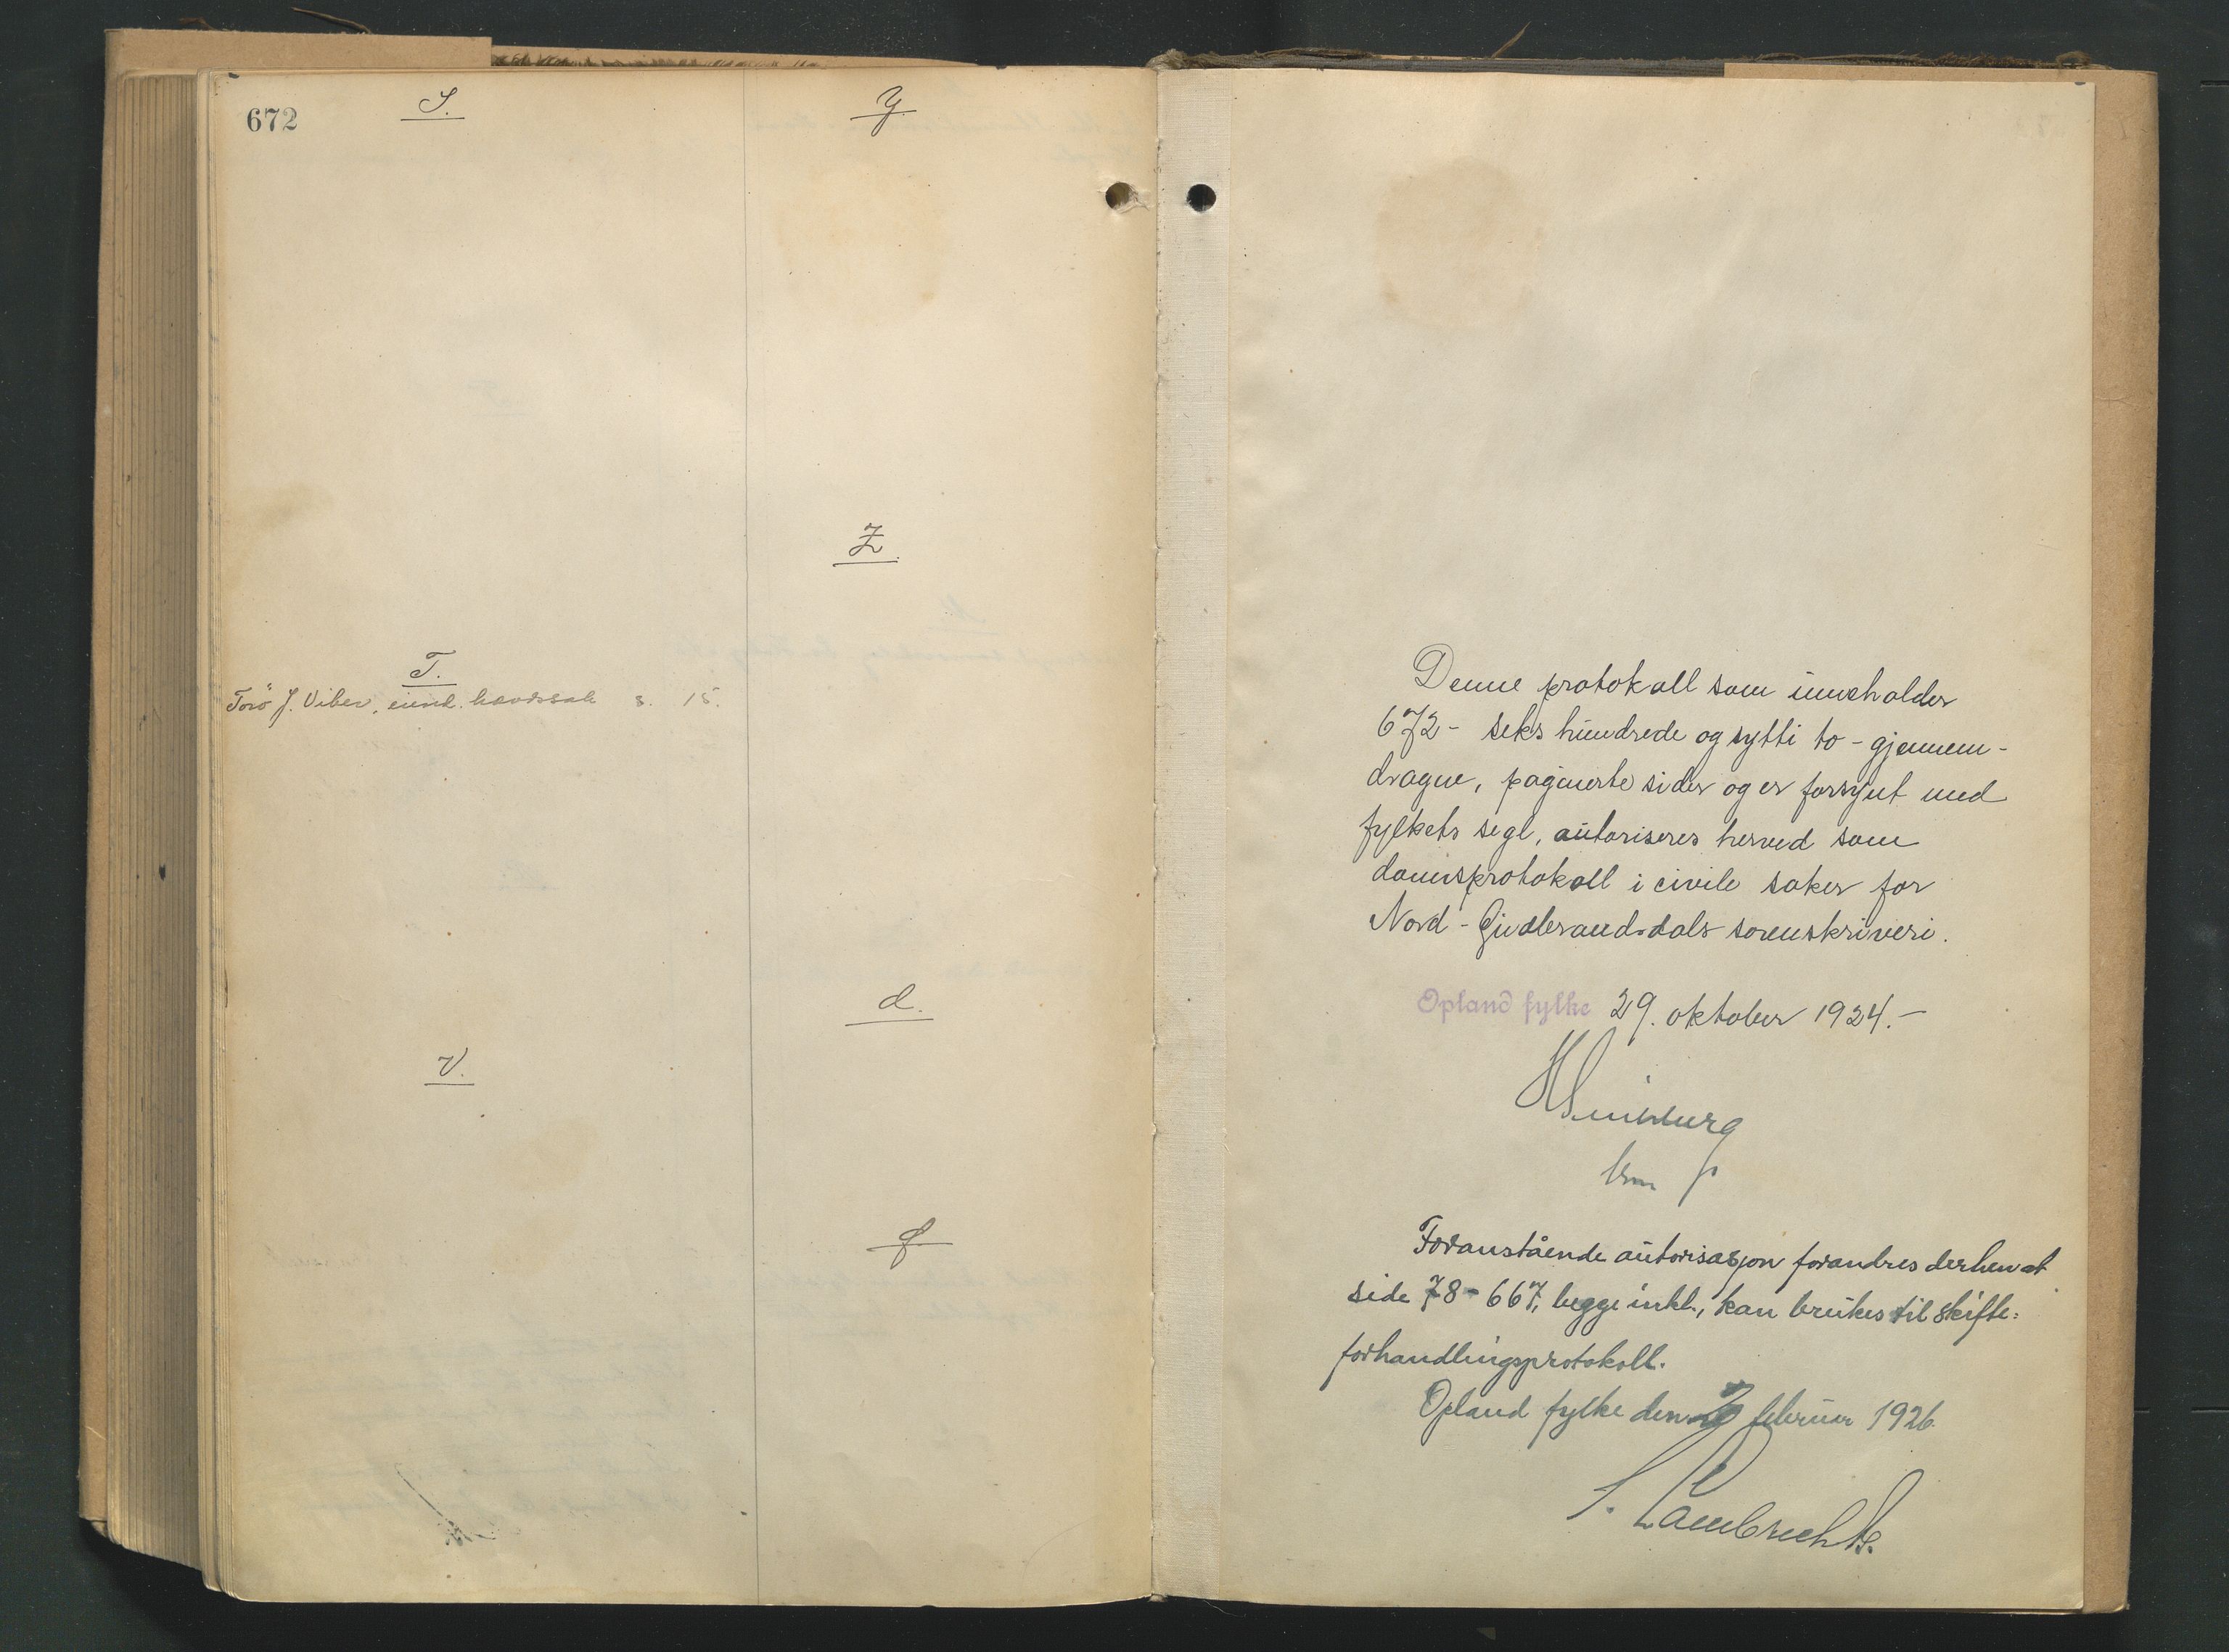 672
S.
T.
Torö J. Viber, hevdssak s. 15.
V.
Y.
Z.
Denne protokoll som inneholder
672 - seks hundrede og sytti to - gjennem-
dragne, paginerte sider og er forsynt med
fylkets segl, autoriseres herved som
domsprotokoll i civile saker for
Nord-Gudbrandsdals sorenskriveri.
Opland fylke 29. oktober 1924.-
Foranstående autorisasjon forandres derhen at
side 78-667, begge inkl., kan brukes til skifte=
forhandlingsprotokoll.
Opland fylke den februar 1926.
S. Lambrechts.